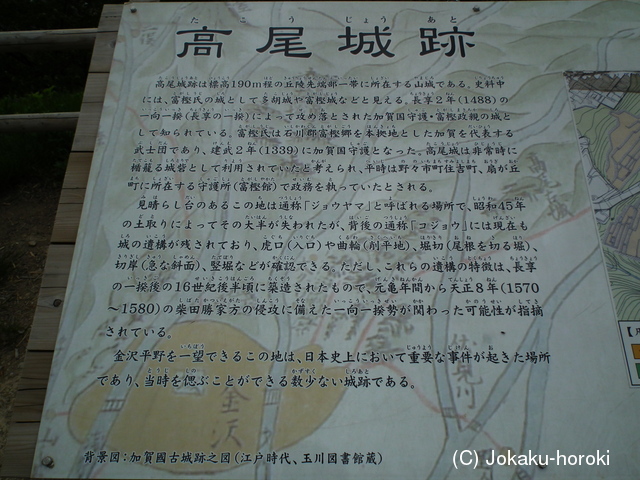 たこうじょうあと
高尾城跡
高尾城跡は標高190m程の丘陵先端部一帯に所在する山城である。史料中
には、富樫氏の城として多胡城や富樫城などと見える。長享2年(1488)の
一向一揆(長享の一揆)によって攻め落とされた加賀国守護・富樫政親の城と
して知られている。富樫氏は石川郡富樫郷を本拠地とした加賀を代表する
武士団であり、建武2年(1339)に加賀国守護となった。高尾城は非常時に
楯籠る城砦として利用されていたと考えられ、平時は野々市町住吉町、扇が丘
町に所在する守護所(富樫館)で政務を執っていたとされる。
見晴らし台のあるこの地は通称「ジョウヤマ」と呼ばれる場所で、昭和45年
の土取りによってその大半が失われたが、背後の通称「コジョウ」には現在も
城の遺構が残されており、虎口(入口)や曲輪(削平地)、堀切(尾根を切る堀)、
切岸(急な斜面)、竪堀などが確認できる。ただし、これらの遺構の特徴は、長享
の一揆後の16世紀後半頃に築造されたもので、元亀年間から天正8年(1570
～1580)の柴田勝家方の侵攻に備えた一向一揆勢が関わった可能性が指摘
されている。
金沢平野を一望できるこの地は、日本史上において重要な事件が起きた場所
であり、当時を偲ぶことができる数少ない城跡である。
金沢
背景図：加賀國古城跡之図(江戸時代、玉川図書館蔵)
(C) Jokaku-horoki